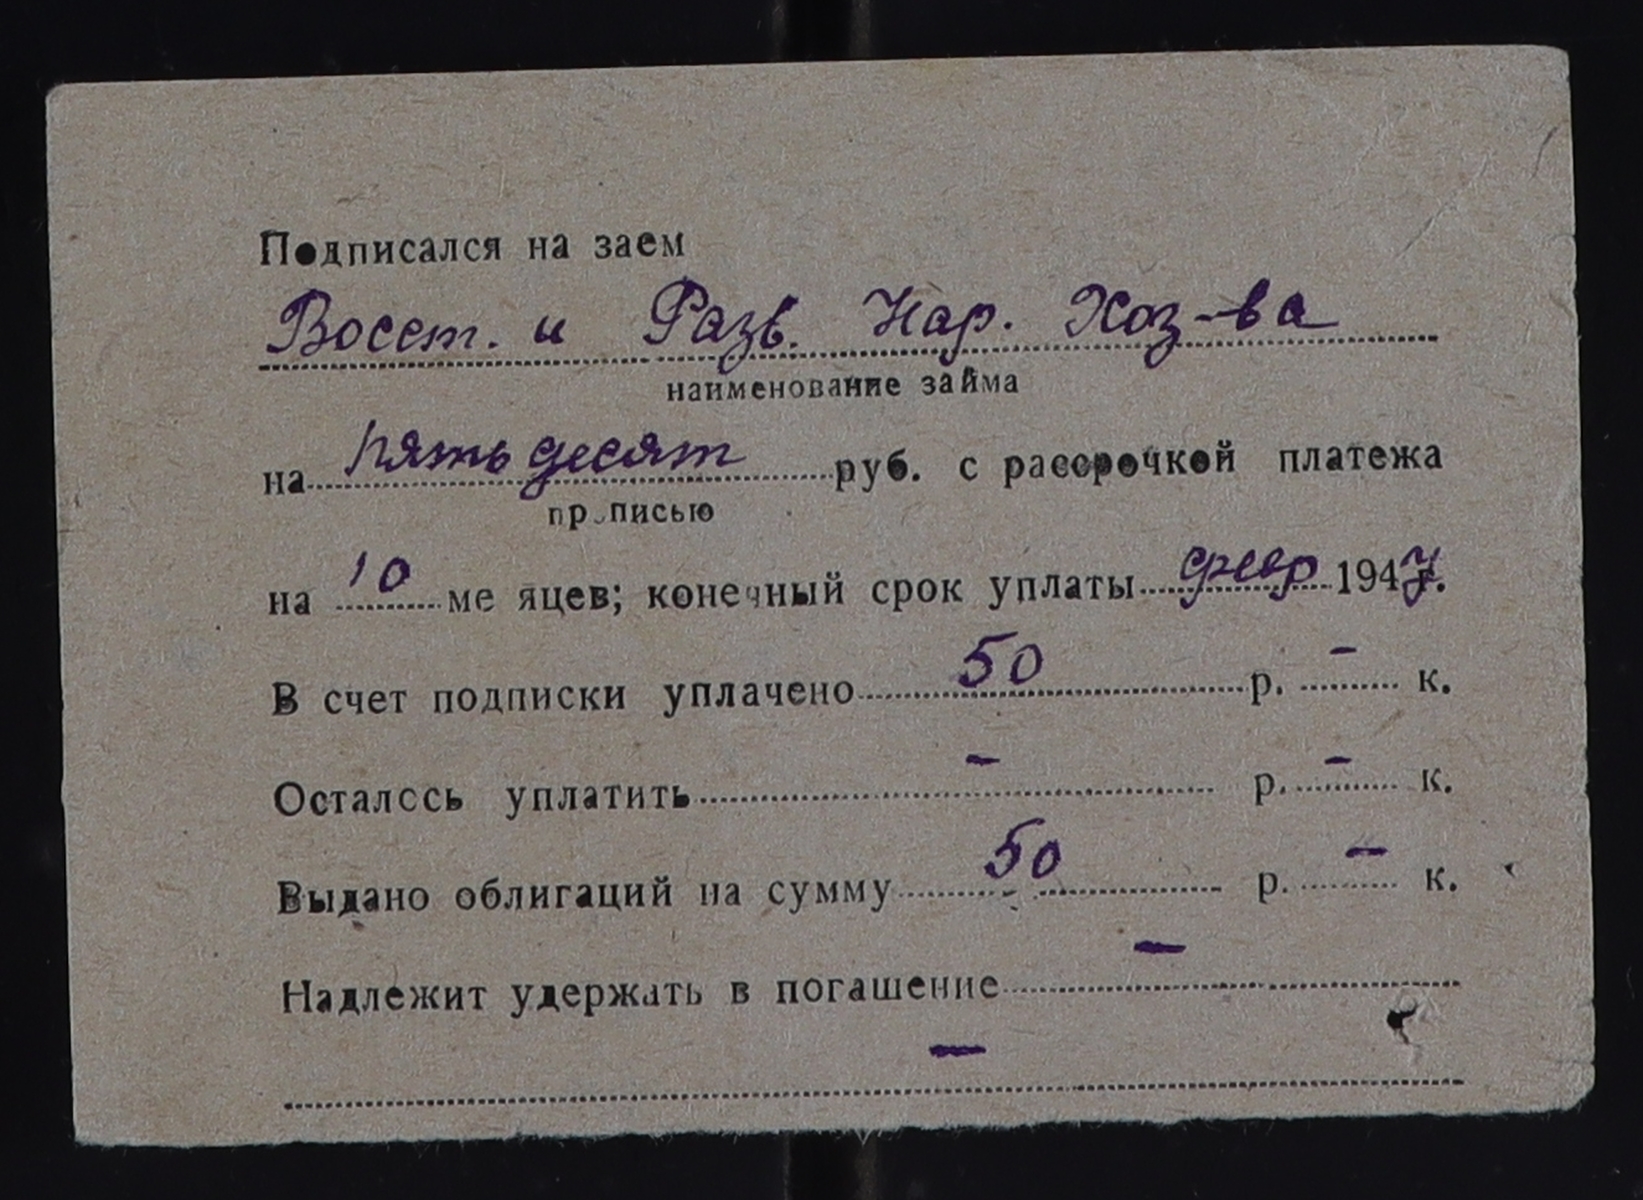 Подписался на заем
Восст. и Разв. Нар. Хоз-ва
наименование займа
на пятьдесят руб. с рассрочкой платежа
прописью
на 10 ме яцев; конечный срок уплаты февр 1947г.
В счет подписки уплачено 50 р. – к.
Осталось уплатить – р. – к.
Выдано облигаций на сумму 50 р. – к.
Надлежит удержать в погашение –
–